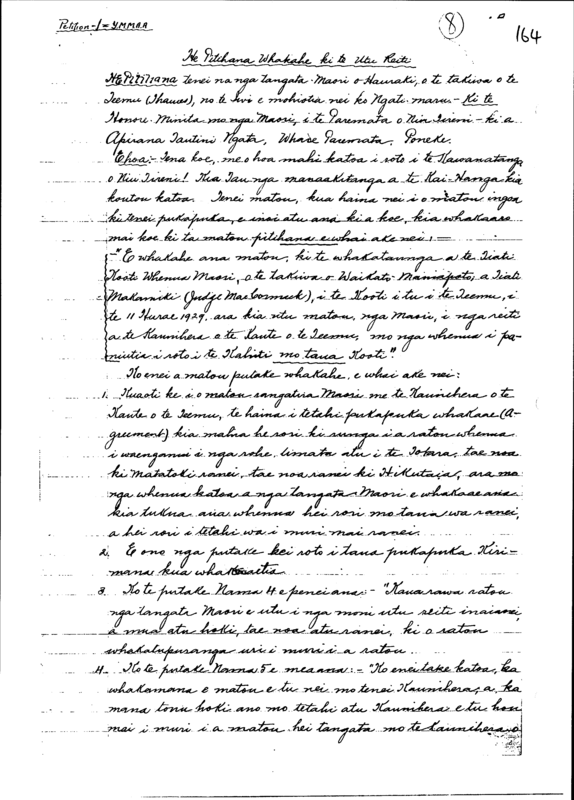 Petition-1=Y.M.M.B.A
(8)
164
He Pitihana Whakahe ki te Utu Reiti
HE Pitihana tenei na nga tangata Maori o Hauraki, o te takiwa o te
Teemu (Thames), no te Iwi e mohiotia nei ko Ngati-maru. - Ki te
Honore Minita mo nga Maori, i te Paremata o Niu Tireni - ki a
Apirana Tautini Ngata, Whare Paremata, Poneke.
Ehoa:- Tena koe, me o hoa mahi katoa i roto i te Kawanatanga
o Niu Tireni! Kia Tau nga manaakitanga a te Kai-Hanga kia
koutou katoa. Tenei matou, kua haina nei i o matou ingoa
ki tenei pukapuka, e inoi atu ana ki a koe, kia whakaaro
mai koe ki ta matou pitihana e whai ake nei; —
"E whakahe ana matou, ki te whakataunga a te Tiati
Kooti Whenua Maori, o te takiwa o Waikato-Maniapoto, a Tiati
Makamiki (Judge MacCormick), i te Kooti i tu i te Teemu, i
te 11 Hurae 1929, ara kia utu matou, nga Maori, i nga reiti
a te Kaunihera o te Kaute o te Teemu, mo nga whenua i pa-
nuitia i roto i te Kahiti mo taua Kooti."
Ko enei a matou putake whakahe, e whai ake nei:
1. Kuaoti ke i o matou rangatira Maori me te Kaunihera o te
Kaute o te Teemu, te haina i tetahi pukapuka whakaae (A-
greement) kia mahia he rori ki runga i a ratou whenua
i waenganui i nga rohe, timata atu i te Totara, tae noa
ki Matatoki ranei, tae noa ranei ki Hikutaia, ara mo
nga whenua katoa a nga tangata Maori e whakaae ana
kia tukua ana whenua hei rori mo taua wa ranei,
a hei rori i tetahi wa i muri mai ranei.
2. E ono nga putake kei roto i taua pukapuka Kiri-
mana kua whakaaetia
3. Ko te putake Nama 4 e penei ana:- "Kaua rawa ratou
nga tangata Maori e utu i nga moni utu reiti inaianei,
a mua atu hoki, tae noa atu ranei, ki o ratou
whakatupuranga uri i muri i a ratou.
4. Ko te putake Nama 5 e mea ana:- "Ko enei take katoa, ka
whakamana e matou e tu nei mo tenei Kaunihera; a, ka
mana tonu hoki ano mo tetahi atu Kaunihera e tu hou
mai i muri i a matou hei tangata mo te Kaunihera o